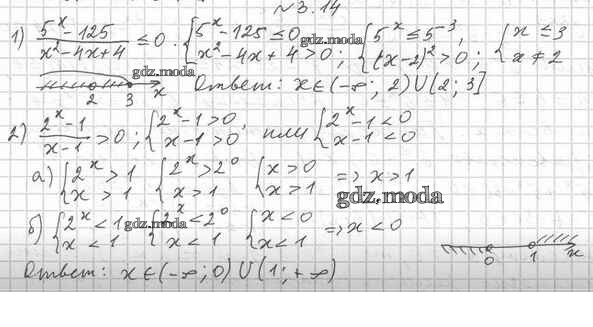 №3.14
1) (5^x-125)/(x²-4x+4) ≤ 0. {5^x-125 ≤ 0, x²-4x+4 > 0; {5^x ≤ 5^3, (x-2)² > 0; {x ≤ 3 x ≠ 2
gdz.moda
gdz.moda
2 3 x Ответ: x∈(-∞; 2)U(2; 3]
2) (2^x-1)/(x-1) > 0; {2^x-1 > 0, x-1 > 0; или {2^x-1 < 0 x-1 < 0
а) {2^x > 1 x > 1 {2^x > 2^0 x > 1 {x > 0 x > 1 => x > 1
gdz.moda
б) {2^x < 1 x < 1 gdz.moda {2^x < 2^0 x < 1 {x < 0 x < 1 => x < 0
0 1 x
Ответ: x∈(-∞; 0)U(1; +∞)